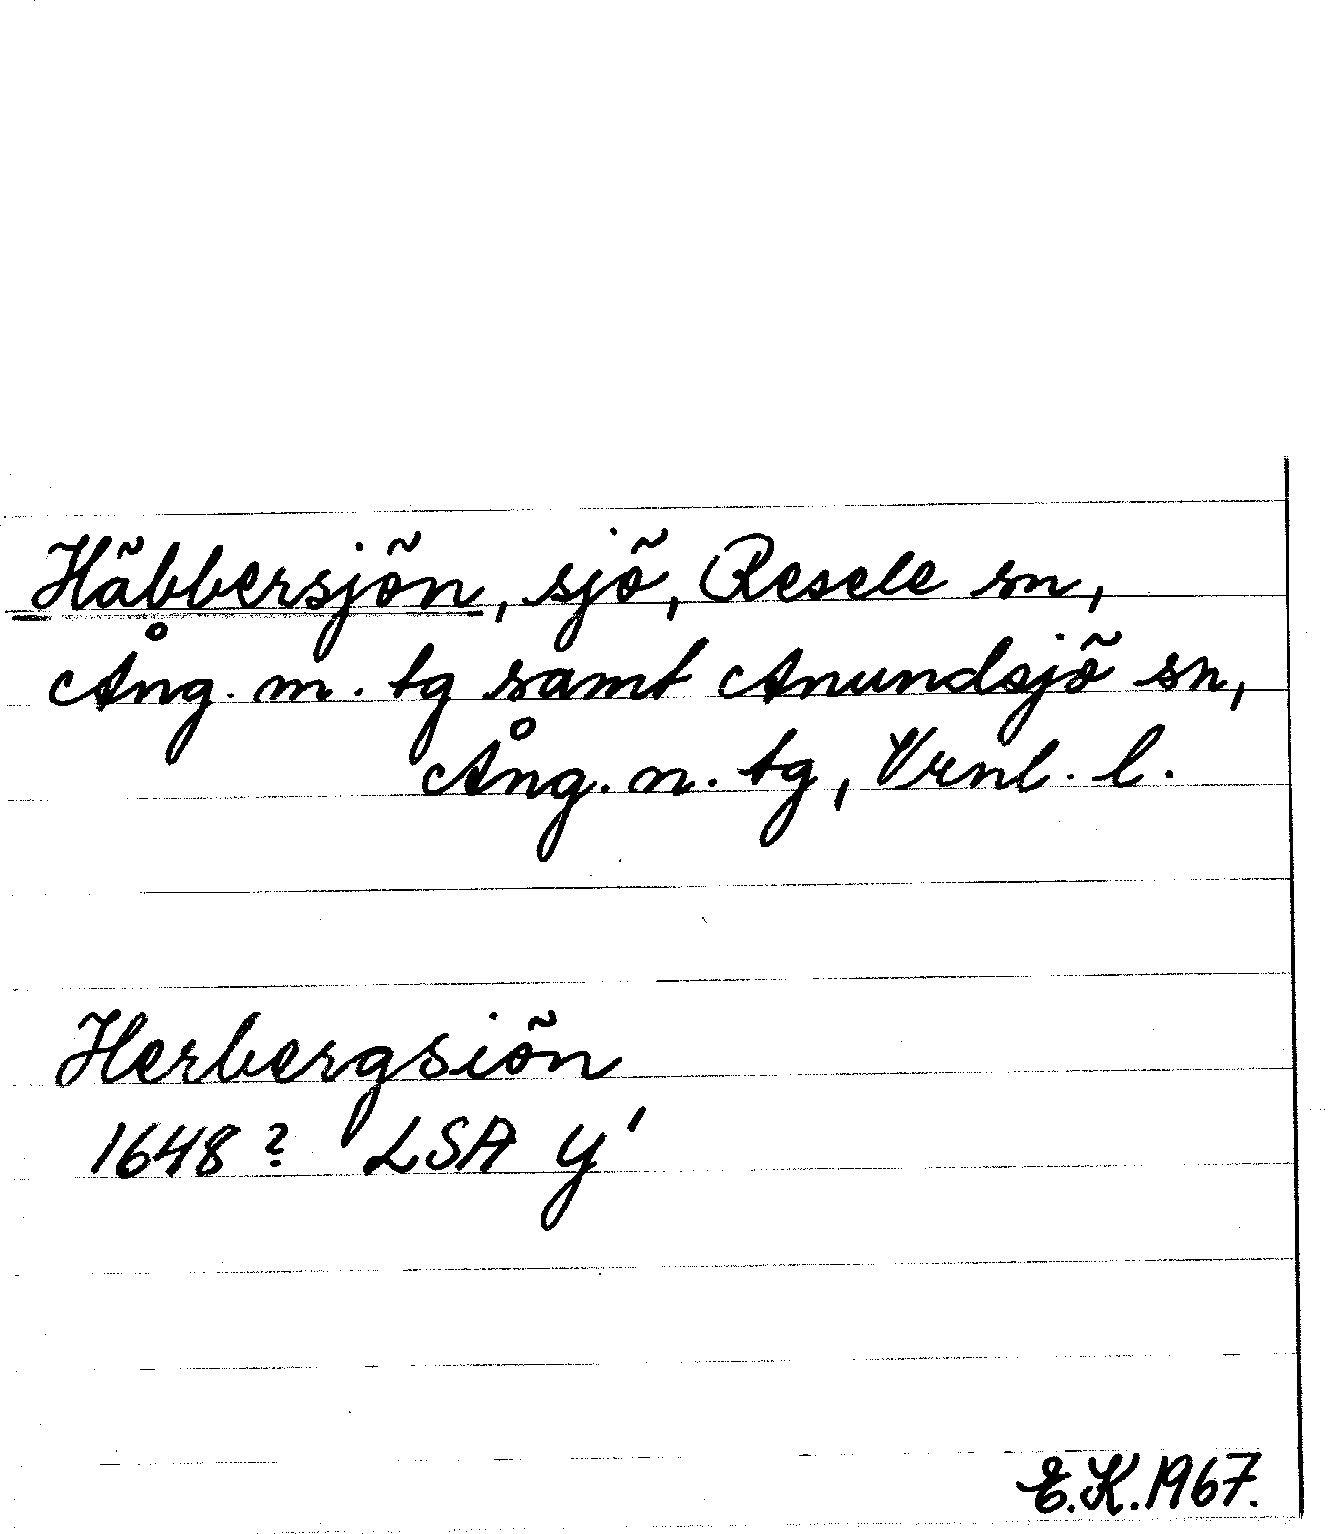 Häbbersjön, sjö, Resele sn,
Ång. m. tg samt Anundsjö sn,
Ång. n. tg, Vrnl. l.
Herbergsiön
1648? LSA Y'
E.K. 1967.